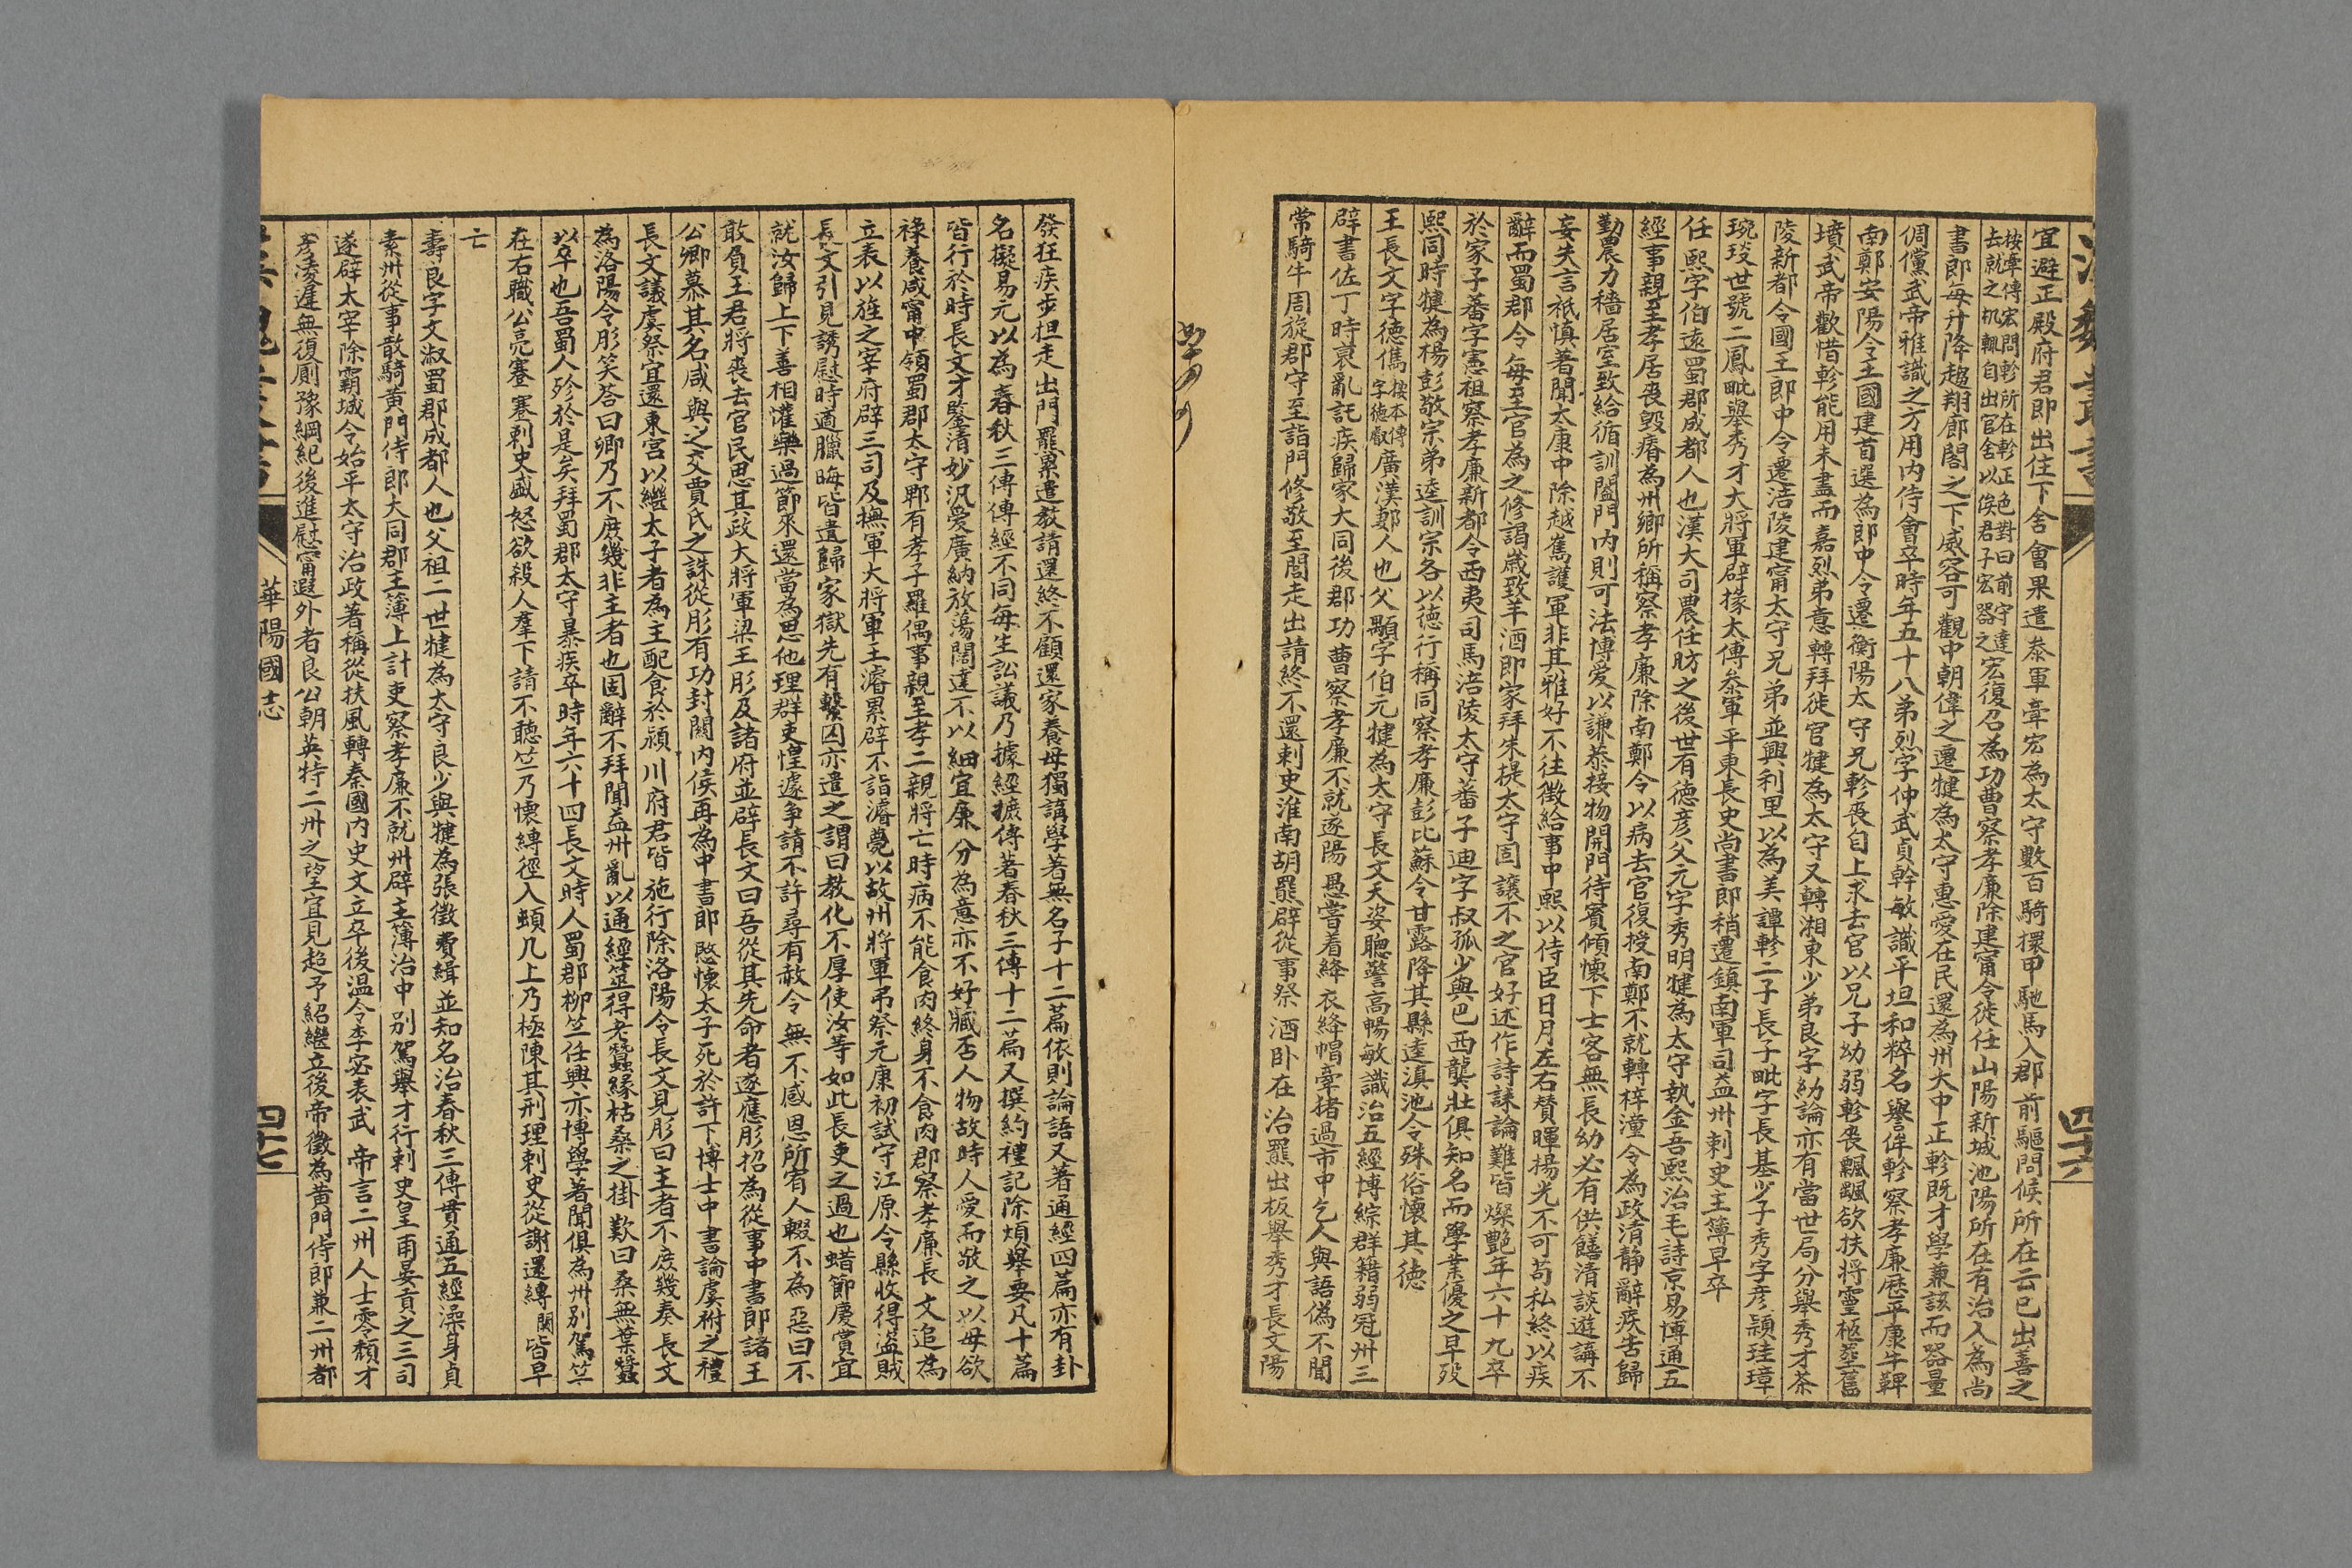 宜避正殿府君即出住下舍會果遣叅軍牽宏為太守數百騎擐甲馳馬入郡前驅問候所在云已出善之
按牽傳宏問軫所在軫正色對曰前守達
去就之机輒自出官舍以俟君子宏器之
宏復召為功曹察孝廉除建甯令徙任山陽新城池陽所在有治入為尚
書郎每升降趨翔廊閣之下威容可觀中朝偉之遷犍為太守惠愛在民還為州大中正軫既才學兼該而器量
倜儻武帝雅識之方用內侍會卒時年五十八弟烈字仲武貞幹敏識平坦和粹名譽侔軫察孝廉歷平康牛鞞
南鄭安陽令王國建首選為郎中令遷衡陽太守兄軫喪自上求去官以兄子幼弱軫喪飄颻欲扶將靈柩塟舊
墳武帝歡惜軫能用未盡而嘉烈弟意轉拜徙官犍為太守又轉湘東少弟良字幼論亦有當世局分舉秀才茶
陵新都令國王郎中令遷涪陵建甯太守兄弟並興利里以為美譚軫二子長子毗字長基少子秀字彥穎珪璋
琬琰世號二鳳毗舉秀才大將軍辟掾太傅叅軍平東長史尚書郎稍遷鎮南軍司益州刺史主簿早卒
任熙字伯遠蜀郡成都人也漢大司農任昉之後世有德彥父元字秀明犍為太守執金吾熙治毛詩京易博通五
經事親至孝居喪毀瘠為州鄉所稱察孝廉除南鄭令以病去官復授南鄭不就轉梓潼令為政清靜辭疾告歸
勤農力穡居室致給循訓闔門內則可法博愛以謙恭接物開門待賓傾懷下士客無長幼必有供饍清談遊講不
妄失言祇慎著聞太康中除越嶲護軍非其雅好不往徵給事中熙以侍臣日月左右賛暉揚光不可苟私終以疾
辭而蜀郡令每至官為之修謁歲致羊酒即家拜朱提太守固讓不之官好述作詩誄論難皆燦艷年六十九卒
於家子蕃字憲祖察孝廉新都令西夷司馬涪陵太守蕃子迪字叔孤少與巴西龔壯俱知名而學業優之早歿
熙同時犍為楊彭敬宗弟逵訓宗各以德行稱同察孝廉彭比蘇令甘露降其縣逵滇池令殊俗懷其德
王長文字德儁
按本傳
字德叡
廣漢郪人也父顒字伯元犍為太守長文天姿聰警高暢敏識治五經博綜群籍弱冠州三
辟書佐丁時衰亂託疾歸家大同後郡功曹察孝廉不就遂陽愚嘗着絳衣絳帽牽猪過市中乞人與語偽不聞
常騎牛周旋郡守至詣門修敬至閭走出請終不還刺史淮南胡羆辟從事祭酒臥在治羆出板舉秀才長文陽
發狂疾步担走出門羆累遣教請還終不顧還家養母獨講學著無名子十二篇依則論語又著通經四篇亦有卦
名擬易元以為春秋三傳傳經不同每生訟議乃據經摭傳著春秋三傳十二篇又撰約禮記除煩舉要凡十篇
皆行於時長文才鑒清妙汎愛廣納放蕩闊達不以細宜廉分為意亦不好臧否人物故時人愛而敬之以母欲
祿養咸甯中領蜀郡太守郫有孝子羅偶事親至孝二親將亡時病不能食肉終身不食肉郡察孝廉長文追為
立表以旌之宰府辟三司及撫軍大將軍王濬累辟不詣濬薨以故州將軍弔祭元康初試守江原令縣收得盜賊
長文引見誘慰時適臘晦皆遣歸家獄先有繫囚亦遣之謂曰教化不厚使汝等如此長吏之過也蜡節慶賞宜
就汝歸上下善相灌樂過節來還當為思他理群吏惶遽爭請不許尋有赦令無不感恩所宥人輟不為惡曰不
敢負王君將喪去官民思其政大將軍梁王肜及諸府並辟長文曰吾從其先命者遂應肜招為從事中書郎諸王
公卿慕其名咸與之交賈氏之誅從肜有功封關內侯再為中書郎愍懷太子死於許下博士中書論虞祔之禮
長文議虞祭宜還東宮以繼太子者為主配食於潁川府君皆施行除洛陽令長文見肜曰主者不庶幾奏長文
為洛陽令肜笑荅曰卿乃不庶幾非主者也固辭不拜聞益州亂以通經筮得老蠶緣枯桑之掛歎曰桑無葉蠶
以卒也吾蜀人殄於是矣拜蜀郡太守暴疾卒時年六十四長文時人蜀郡柳竺任興亦博學著聞俱為州別駕竺
在右職公亮蹇蹇刺史盛怒欲殺人羣下請不聽竺乃懷縛徑入蝢几上乃極陳其刑理刺史從謝還縛閔皆早
亡
壽良字文淑蜀郡成都人也父祖二世犍為太守良少與犍為張徵費緝並知名治春秋三傳貫通五經澡身貞
素州從事散騎黃門侍郎大同郡主簿上計吏察孝廉不就州辟主簿治中別駕舉才行刺史皇甫晏貢之三司
遂辟太宰除霸城令始平太守治政著稱從扶風轉秦國內史文立卒後温令李宓表武 帝言二州人士零頹才
彥淩遲無復廁豫綱紀後進慰甯遐外者良公朝英特二州之望宜見超予紹繼立後帝徵為黃門侍郎兼二州都
華陽國志
四十六
四十七